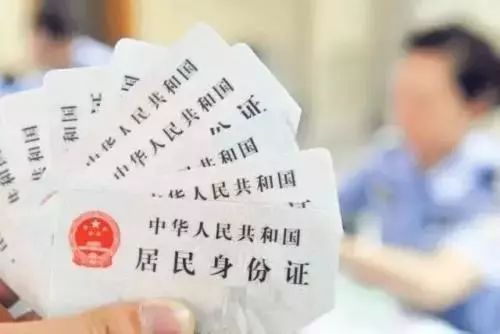 中华人民共和国
中华人民共和国
份证
中华人民共和国
中华人民共和国
居民身份证